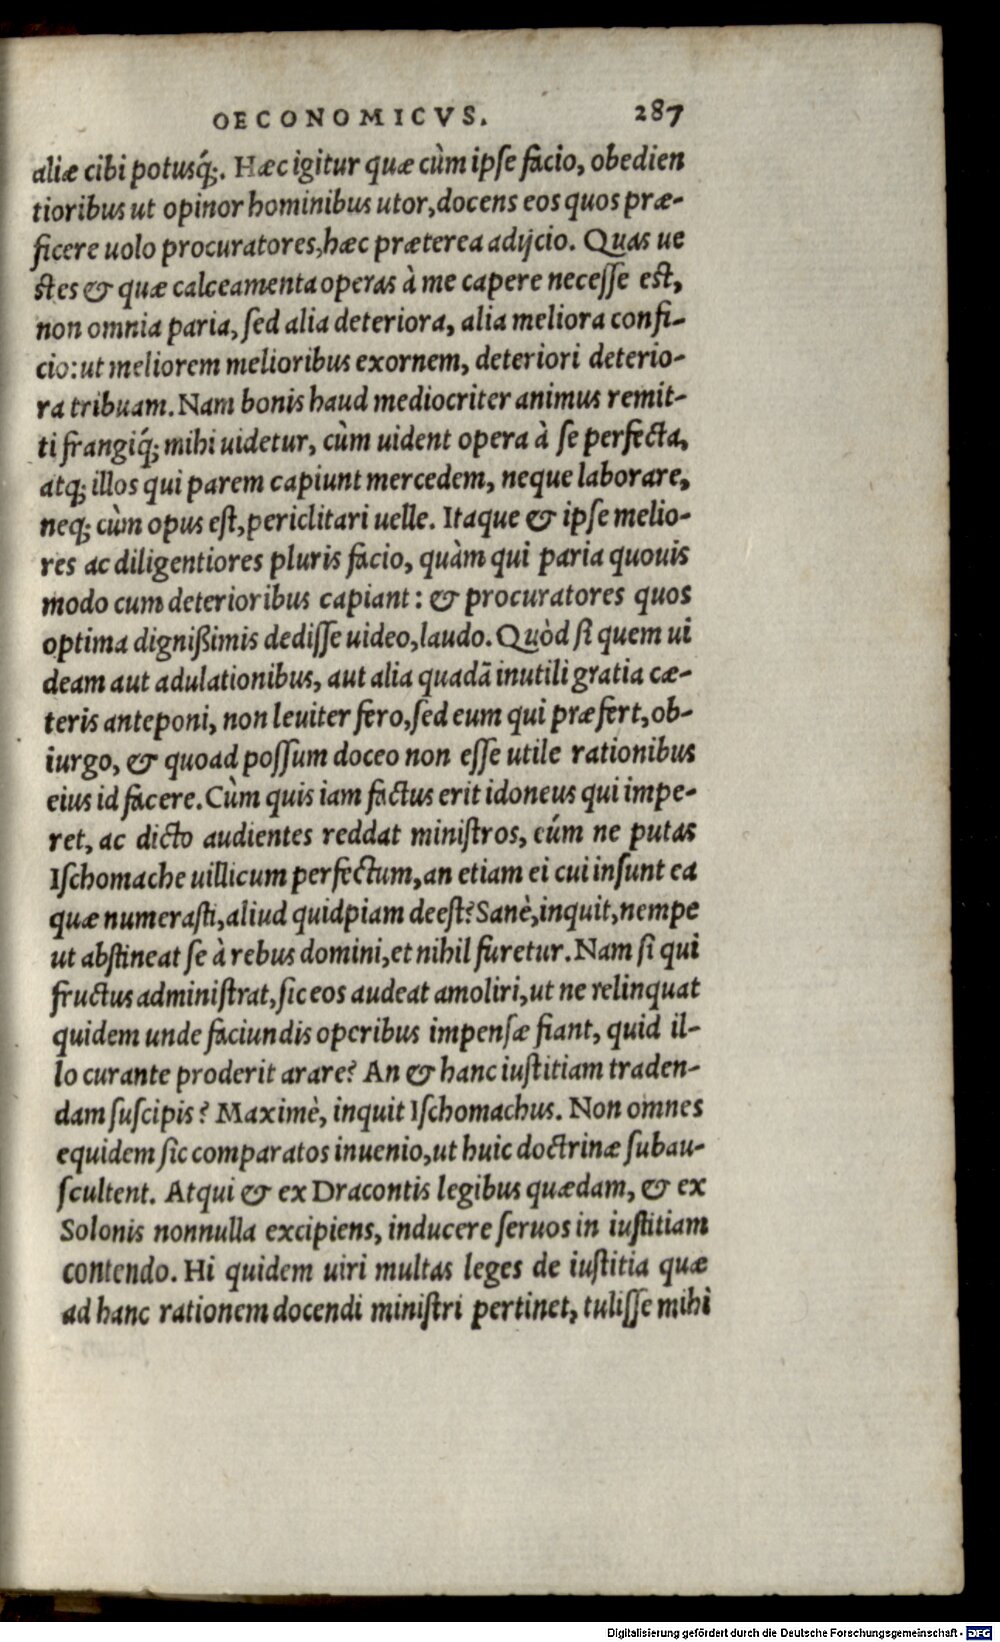 OECONOMICVS. 287
aliæ cibi potusq́;. Hæc igitur quæ cùm ipſe facio, obedien
tioribus ut opinor hominibus utor, docens eos quos præ-
ficere uolo procuratores, hæc præterea adijcio. Quas ue
ſtes & quæ calceamenta operas à me capere neceſſe eſt,
non omnia paria, ſed alia deteriora, alia meliora confi-
cio: ut meliorem melioribus exornem, deteriori deterio-
ra tribuam. Nam bonis haud mediocriter animus remit-
ti frangiq́; mihi uidetur, cùm uident opera à ſe perfecta,
atq; illos qui parem capiunt mercedem, neque laborare,
neq; cùm opus eſt, periclitari uelle. Itaque & ipſe melio-
res ac diligentiores pluris facio, quàm qui paria quouis
modo cum deterioribus capiant: & procuratores quos
optima dignißimis dediſſe uideo, laudo. Quòd ſi quem ui
deam aut adulationibus, aut alia quadã inutili gratia cæ-
teris anteponi, non leuiter fero, ſed eum qui præfert, ob-
iurgo, & quoad poſſum doceo non eſſe utile rationibus
eius id facere. Cùm quis iam factus erit idoneus qui impe-
ret, ac dicto audientes reddat miniſtros, eúm ne putas
Iſchomache uillicum perfectum, an etiam ei cui inſunt ea
quæ numeraſti, aliud quidpiam deeſt? Sanè, inquit, nempe
ut abſtineat ſe à rebus domini, et nihil furetur. Nam ſi qui
fructus adminiſtrat, ſic eos audeat amoliri, ut ne relinquat
quidem unde faciundis operibus impenſæ fiant, quid il-
lo curante proderit arare? An & hanc iuſtitiam traden-
dam ſuſcipis? Maximè, inquit Iſchomachus. Non omnes
equidem ſic comparatos inuenio, ut huic doctrinæ ſubau-
ſcultent. Atqui & ex Dracontis legibus quædam, & ex
Solonis nonnulla excipiens, inducere ſeruos in iuſtitiam
contendo. Hi quidem uiri multas leges de iuſtitia quæ
ad hanc rationem docendi miniſtri pertinet, tuliſſe mihi
Digitalisierung gefördert durch die Deutsche Forschungsgemeinschaft - DFG